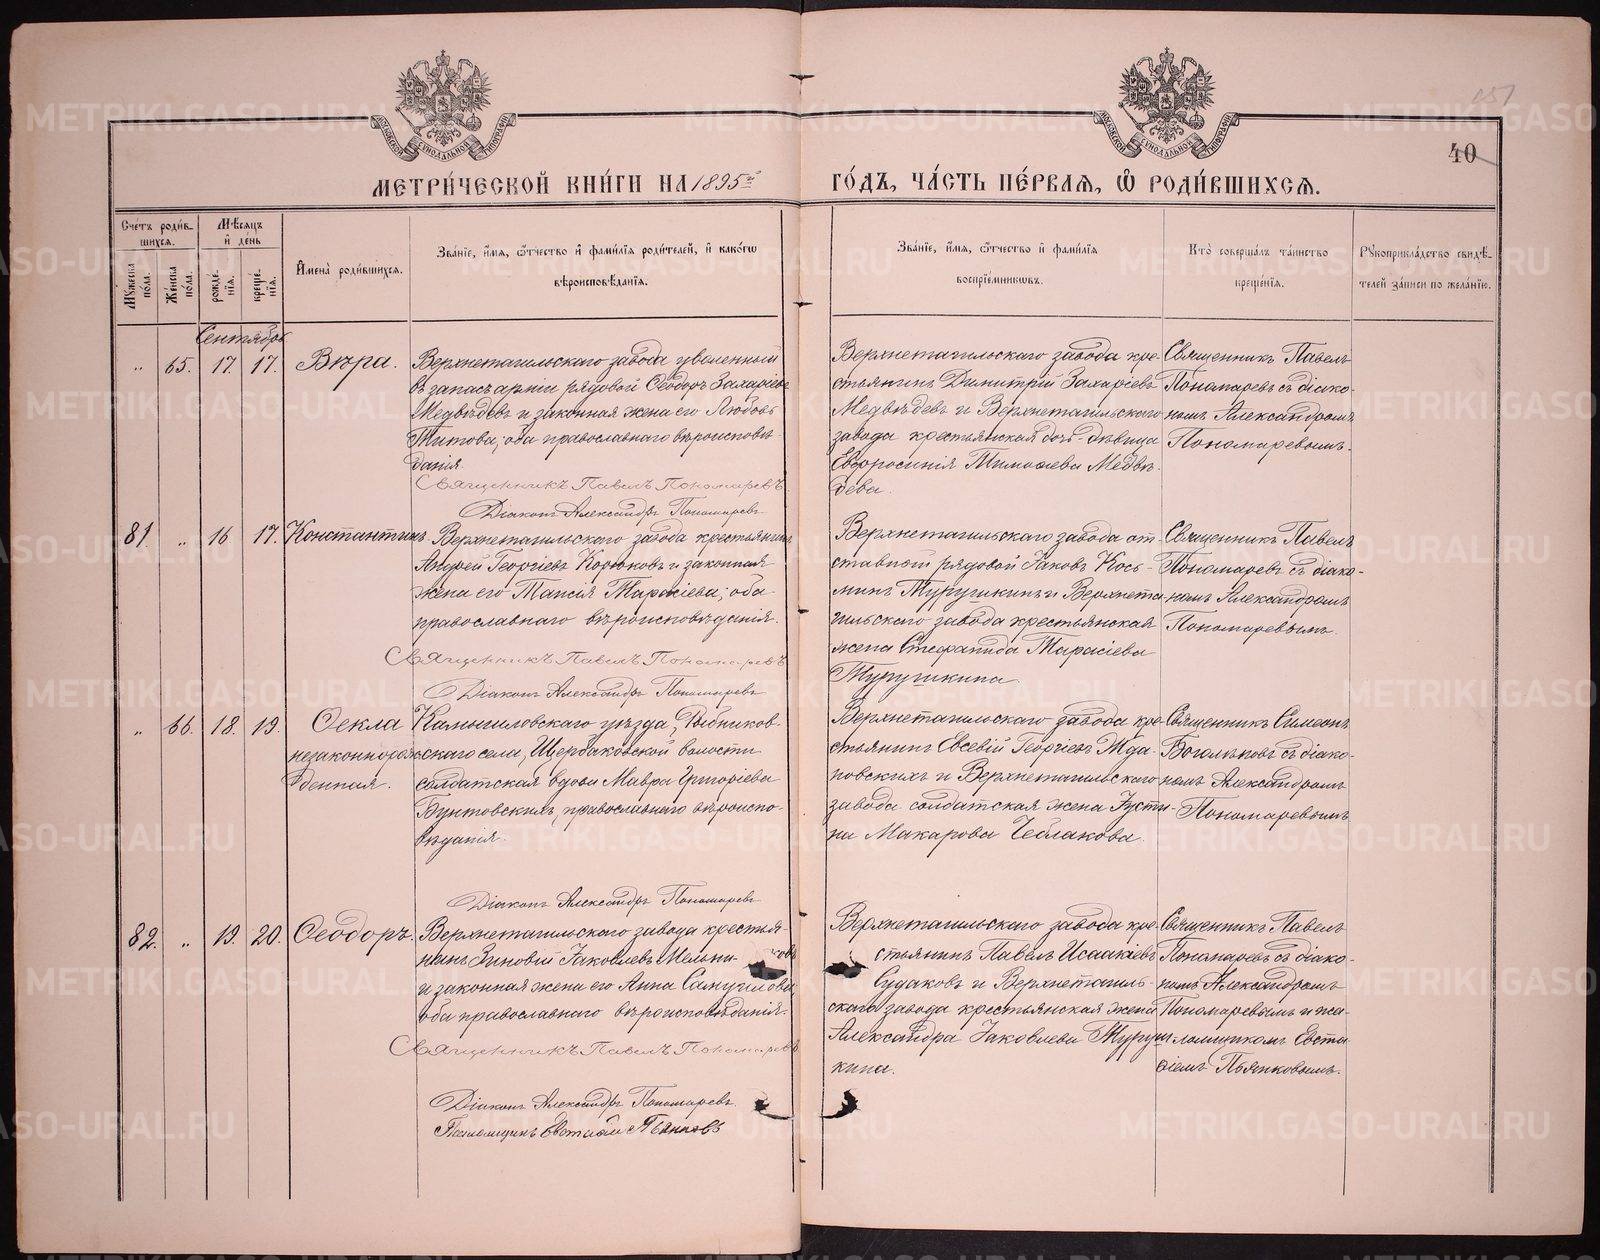 151
40
МЕТРИ́ЧЕСКОЙ КНИ́ГИ НА 1895й
ГО́ДЪ, ЧА́СТЬ ПЕ́РВАѦ, Ѡ҆ РОДИ́ВШИХСѦ.
Сче́тъ роди́в-
шихсѧ.
Мꙋ́жеска по́ла.
Же́нска по́ла.
Мѣ́сѧцъ и҆ де́нь
рожде́-нїѧ.
креще́-нїѧ.
И҆мена̀ роди́вшихсѧ.
Зва́нїе, и҆́мѧ, ѻ҆́тчество и҆ фами́лїѧ роди́телей, и҆ како́гѡ
вѣроисповѣ́данїѧ.
Зва́нїе, и҆́мѧ, ѻ҆́тчество и҆ фами́лїѧ
воспрїе́мникѡвъ.
Кто̀ соверша́лъ та́инство
креще́нїѧ.
Рꙋкоприкла́дство свидѣ́-
телей за́писи по жела́нїю.
Сентябрь
" 65. 17. 17. Вѣра.
Верхнетагильскаго завода уволенный
въ запасъ арміи рядовой Ѳеодоръ Захаріевъ
Медвѣдевъ и законная жена его Любовь
Титова, оба православнаго вѣроисповѣ
данія.
Священникъ Павелъ Пономаревъ.
Діаконъ Александръ Пономаревъ
Верхнетагильскаго завода кре-
стьянинъ Димитрій Захаріевъ
Медвѣдевъ и Верхнетагильскаго
завода крестьянская дочь-дѣвица
Евфросинія Тимоѳеева Медвѣ-
дева.
Священникъ Павелъ
Пономаревъ съ діако-
номъ Александромъ
Пономаревымъ.
81. " 16 17. Константинъ
Верхнетагильскаго завода крестьянинъ
Андрей Георгіевъ Корюковъ и законная
жена его Таисія Тарасіева; оба
православнаго вѣроисповѣданія.
Священникъ Павелъ Пономаревъ
Діаконъ Александръ Пономаревъ
Верхнетагильскаго завода от-
ставной рядовой Іаковъ Кось-
минъ Туругикинъ и Верхнета-
гильскаго завода крестьянская
жена Стефанида Тарасіева
Туругикина
Священникъ Павелъ
Пономаревъ съ діако-
номъ Александромъ
Пономаревымъ.
" 66. 18. 19. Ѳекла
незаконнорож
денная.
Камышловскаго уѣзда, Рыбников-
скаго села, Щербаковской волости
солдатская вдова Мавра Григоріева
Бунтовскихъ, православнаго вѣроиспо-
вѣданія.
Діаконъ Александръ Пономаревъ
Верхнетагильскаго завода кре-
стьянинъ Евсевій Георгіевъ Жда-
новскихъ и Верхнетагильскаго
завода солдатская жена Іусти-
на Макарова Чеблакова.
Священникъ Симеонъ
Боголѣповъ съ діако-
номъ Александромъ
Пономаревымъ
82. " 19. 20. Ѳеодоръ.
Верхнетагильскаго завода крестья-
нинъ Зиновій Іаковлевъ Мельни- ковъ
и законная жена его Анна Самуилова,
оба православнаго вѣроисповѣданія.
Священникъ Павелъ Пономаревъ
Діаконъ Александръ Пономаревъ.
Псаломщикъ Евстаѳій Пьянковъ
Верхнетагильскаго завода кре-
стьянинъ Павелъ Исаакіевъ
Судаковъ и Верхнетагиль-
скаго завода крестьянская жена
Александра Іаковлева Туруги
кина.
Священникъ Павелъ
Пономаревъ съ діако-
номъ Александромъ
Пономаревымъ и пса-
ломщикомъ Евста-
ѳіемъ Пьянковымъ.
METRIKI.GASO-URAL.RU